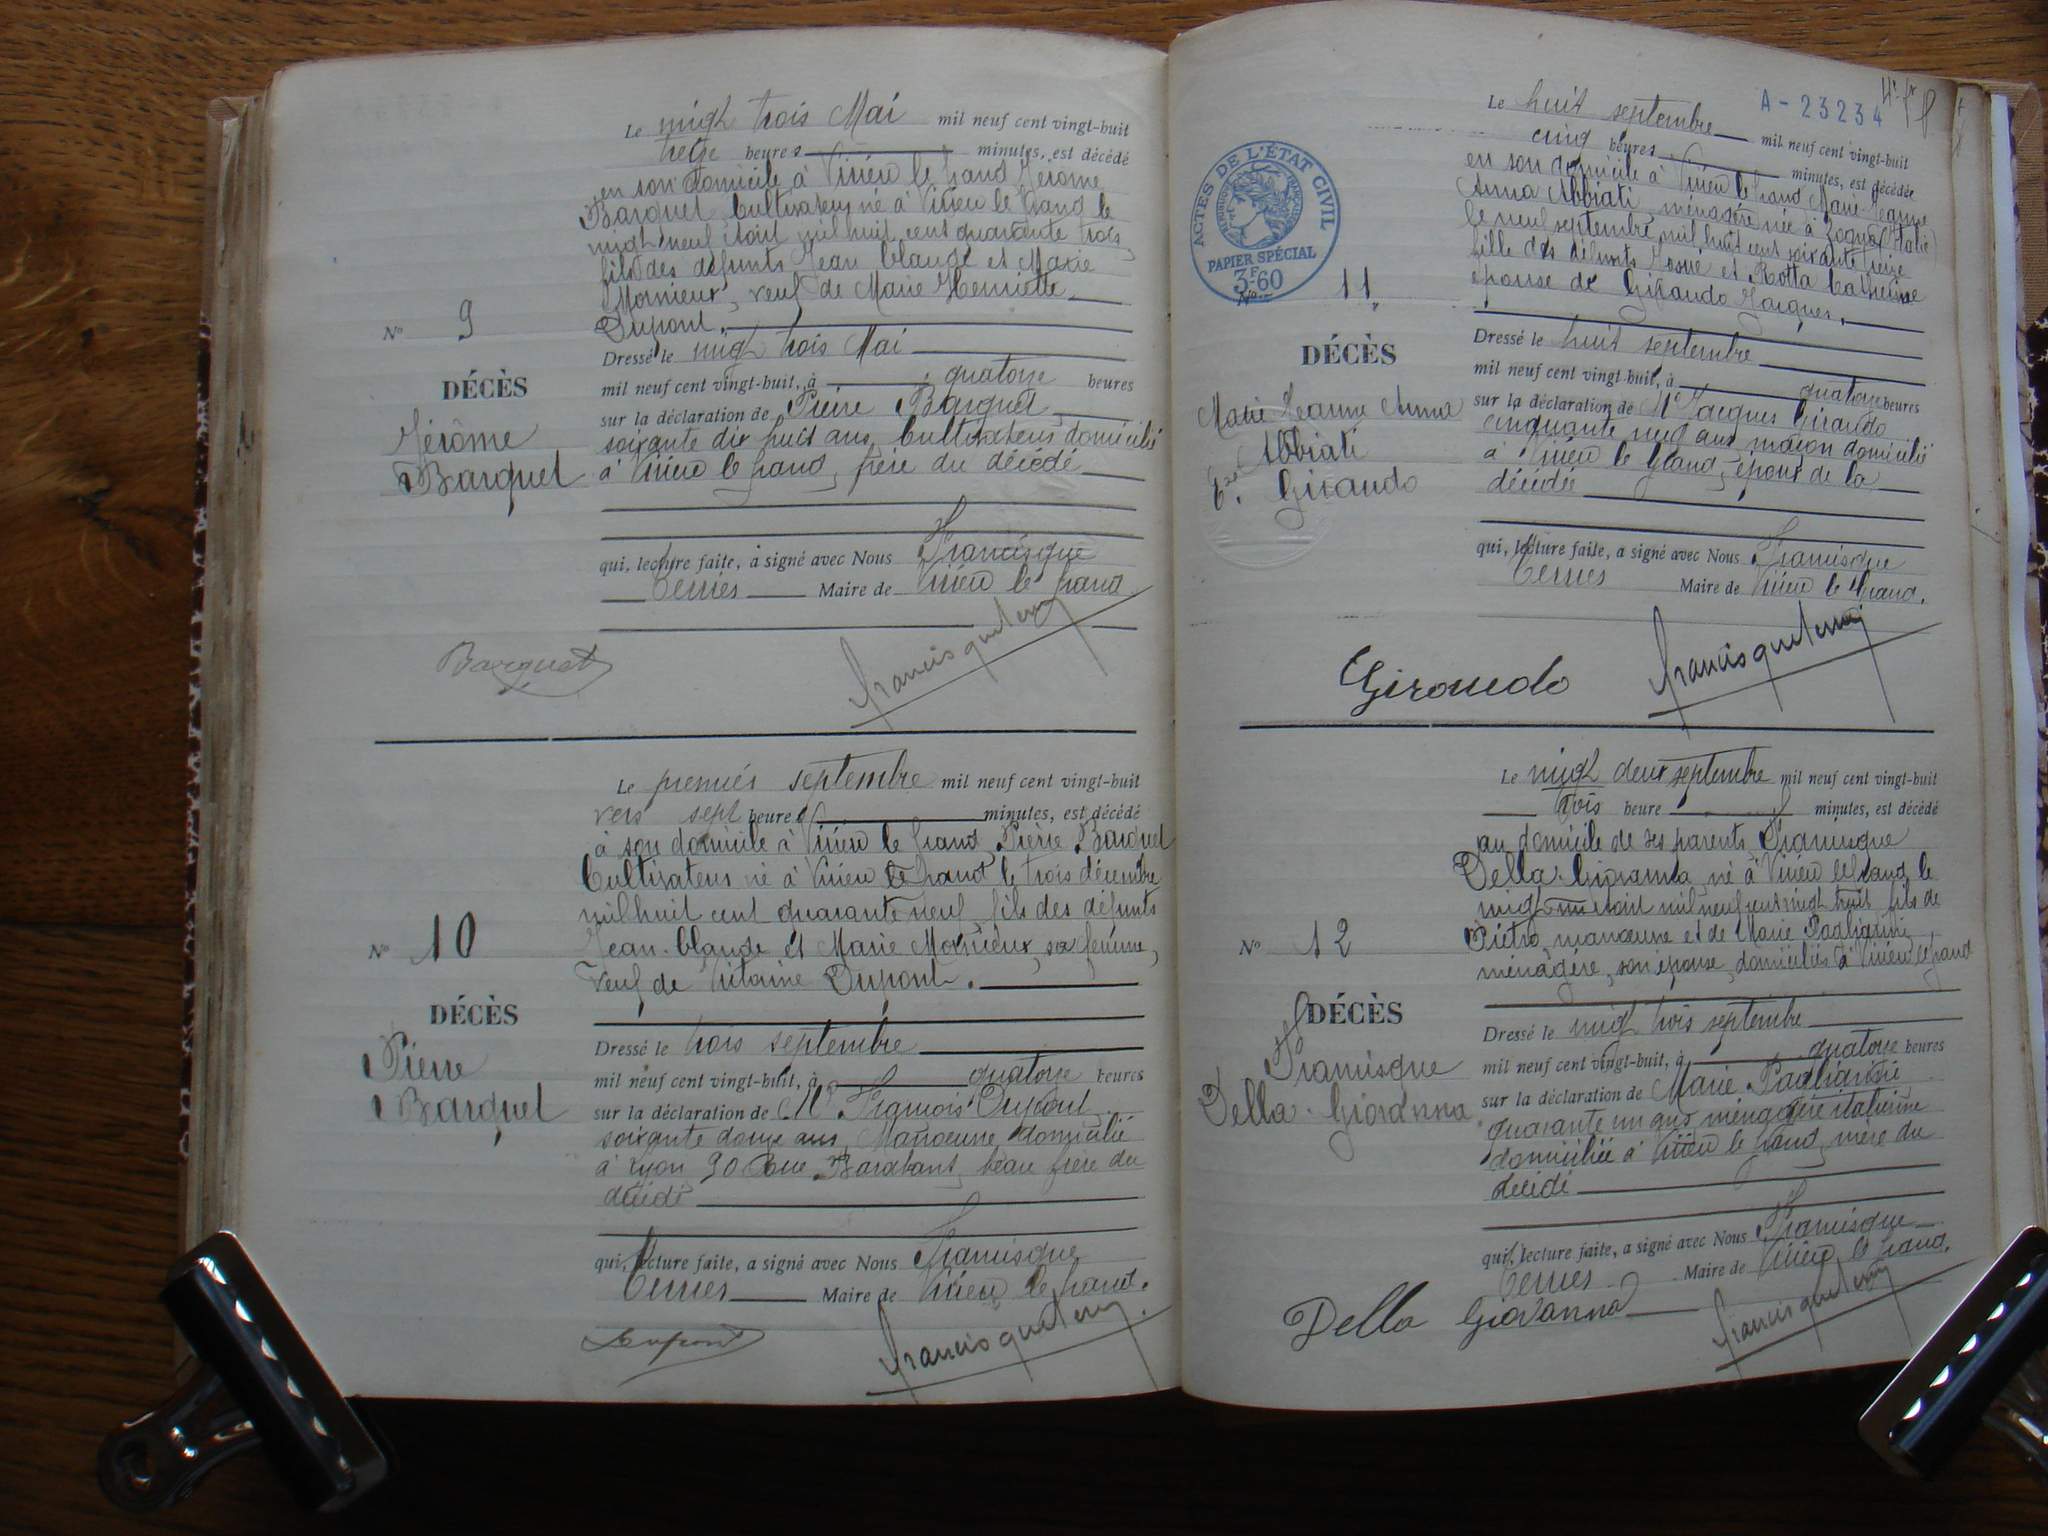 Le vingt trois Mai mil neuf cent vingt-huit
treize heures minutes, est décédé
en son domicile à Virieu le Grand Jérôme
Barquet, Cultivateur né à Virieu le Grand le
vingt neuf Août mil huit cent quarante trois,
fils des défunts Jean Claude et Marie
Mornieux, veuf de Marie Henriette
Dupont.
Nº 9
DÉCÈS
Jérôme
Barquet
Dressé le vingt trois Mai
mil neuf cent vingt-huit, à quatorze heures
sur la déclaration de Pierre Barquet
soixante dix huit ans, Cultivateur, domicilié
à Virieu le Grand, frère du décédé
qui, lecture faite, a signé avec Nous Francisque
Terries Maire de Virieu le Grand
Barquet
Le premier septembre mil neuf cent vingt-huit
vers sept heures minutes, est décédé
à son domicile à Virieu le Grand Pierre Barquet
Cultivateur né à Virieu le Grand le trois décembre
mil huit cent quarante neuf, fils des défunts
Jean-Claude et Marie Mornieux, sa femme,
Veuf de Dupont.
Nº 10
DÉCÈS
Pierre
Barquet
Dressé le trois septembre
mil neuf cent vingt-huit, à quatorze heures
sur la déclaration de Mr François Dupont
soixante douze ans, Manoeuvre, domicilié
à Lyon 90 Rue Baraban, beau frère du
décédé
qui, lecture faite, a signé avec Nous Francisque
Terries Maire de Virieu le Grand.
Dupont
A-23234
Le huit septembre mil neuf cent vingt-huit
cinq heures minutes, est décédée
en son domicile à Virieu le Grand Marie-Jeanne
Anna Abbiati ménagère née à (Italie)
le neuf septembre mil huit cent soixante seize
fille des défunts Josué et Rotta Catherine
épouse de Giraudo Jacques.
ACTES DE L'ÉTAT CIVIL
PAPIER SPÉCIAL
3F60
Nº 11
DÉCÈS
Marie Jeanne Anna
Abbiati
Ese Giraudo
Dressé le huit septembre
mil neuf cent vingt-huit, à quatorze heures
sur la déclaration de Mr Jacques Giraudo
cinquante neuf ans maçon domicilié
à Virieu le Grand, époux de la
décédée
qui, lecture faite, a signé avec Nous Francisque
Terries Maire de Virieu le Grand.
Giraudo
Le vingt deux septembre mil neuf cent vingt-huit
trois heure minutes, est décédé
au domicile de ses parents, Francisque
Della-Giovanna, né à Virieu le Grand, le
vingt un Août mil neuf cent vingt huit, fils de
Piétro, manoeuvre et de Marie
ménagère, son épouse, domiciliés à Virieu le Grand
Nº 12
DÉCÈS
Francisque
Della-Giovanna
Dressé le vingt trois septembre
mil neuf cent vingt-huit, à quatorze heures
sur la déclaration de Marie
quarante un ans ménagère italienne
domiciliée à Virieu le Grand, mère du
décédé
qui, lecture faite, a signé avec Nous Francisque
Terries Maire de Virieu le Grand.
Della Giovanna